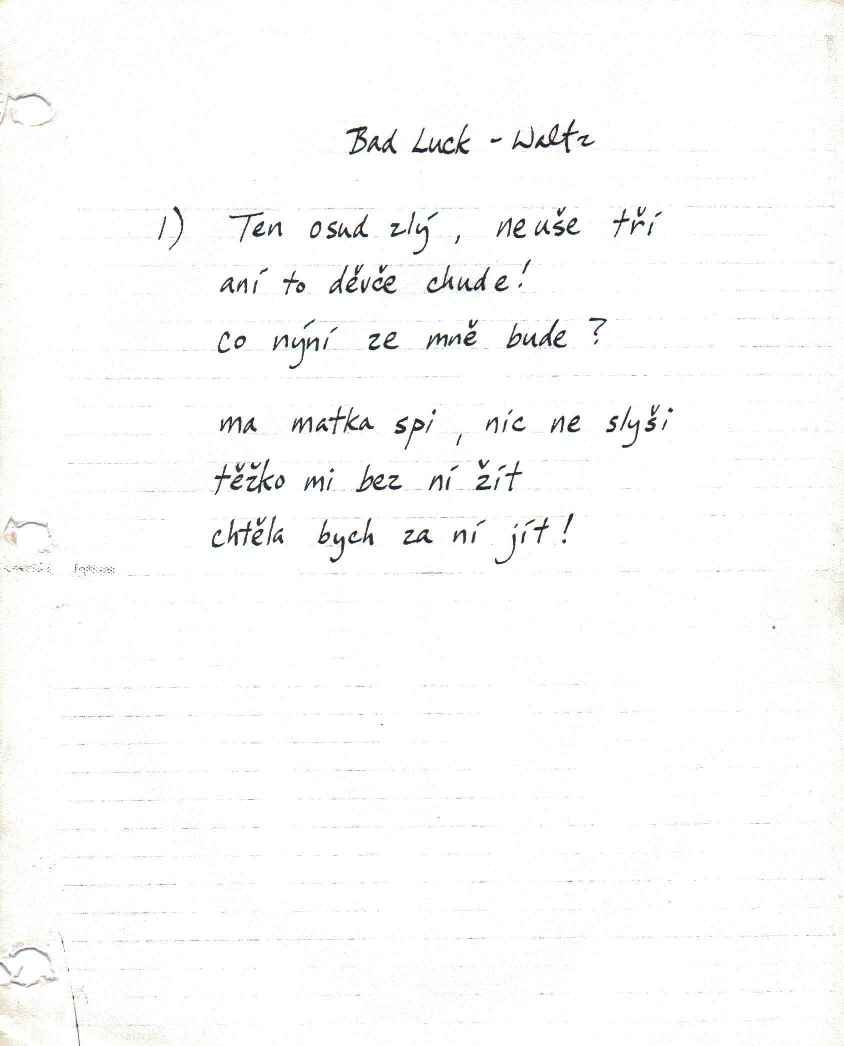 Bad Luck - Waltz
1) Ten osud zlý, neuše tří
aní to děvče chude!
co nýní ze mně bude?
ma matka spi, nic ne slyši
těžko mi bez ní žít
chtěla bych za ní jít!